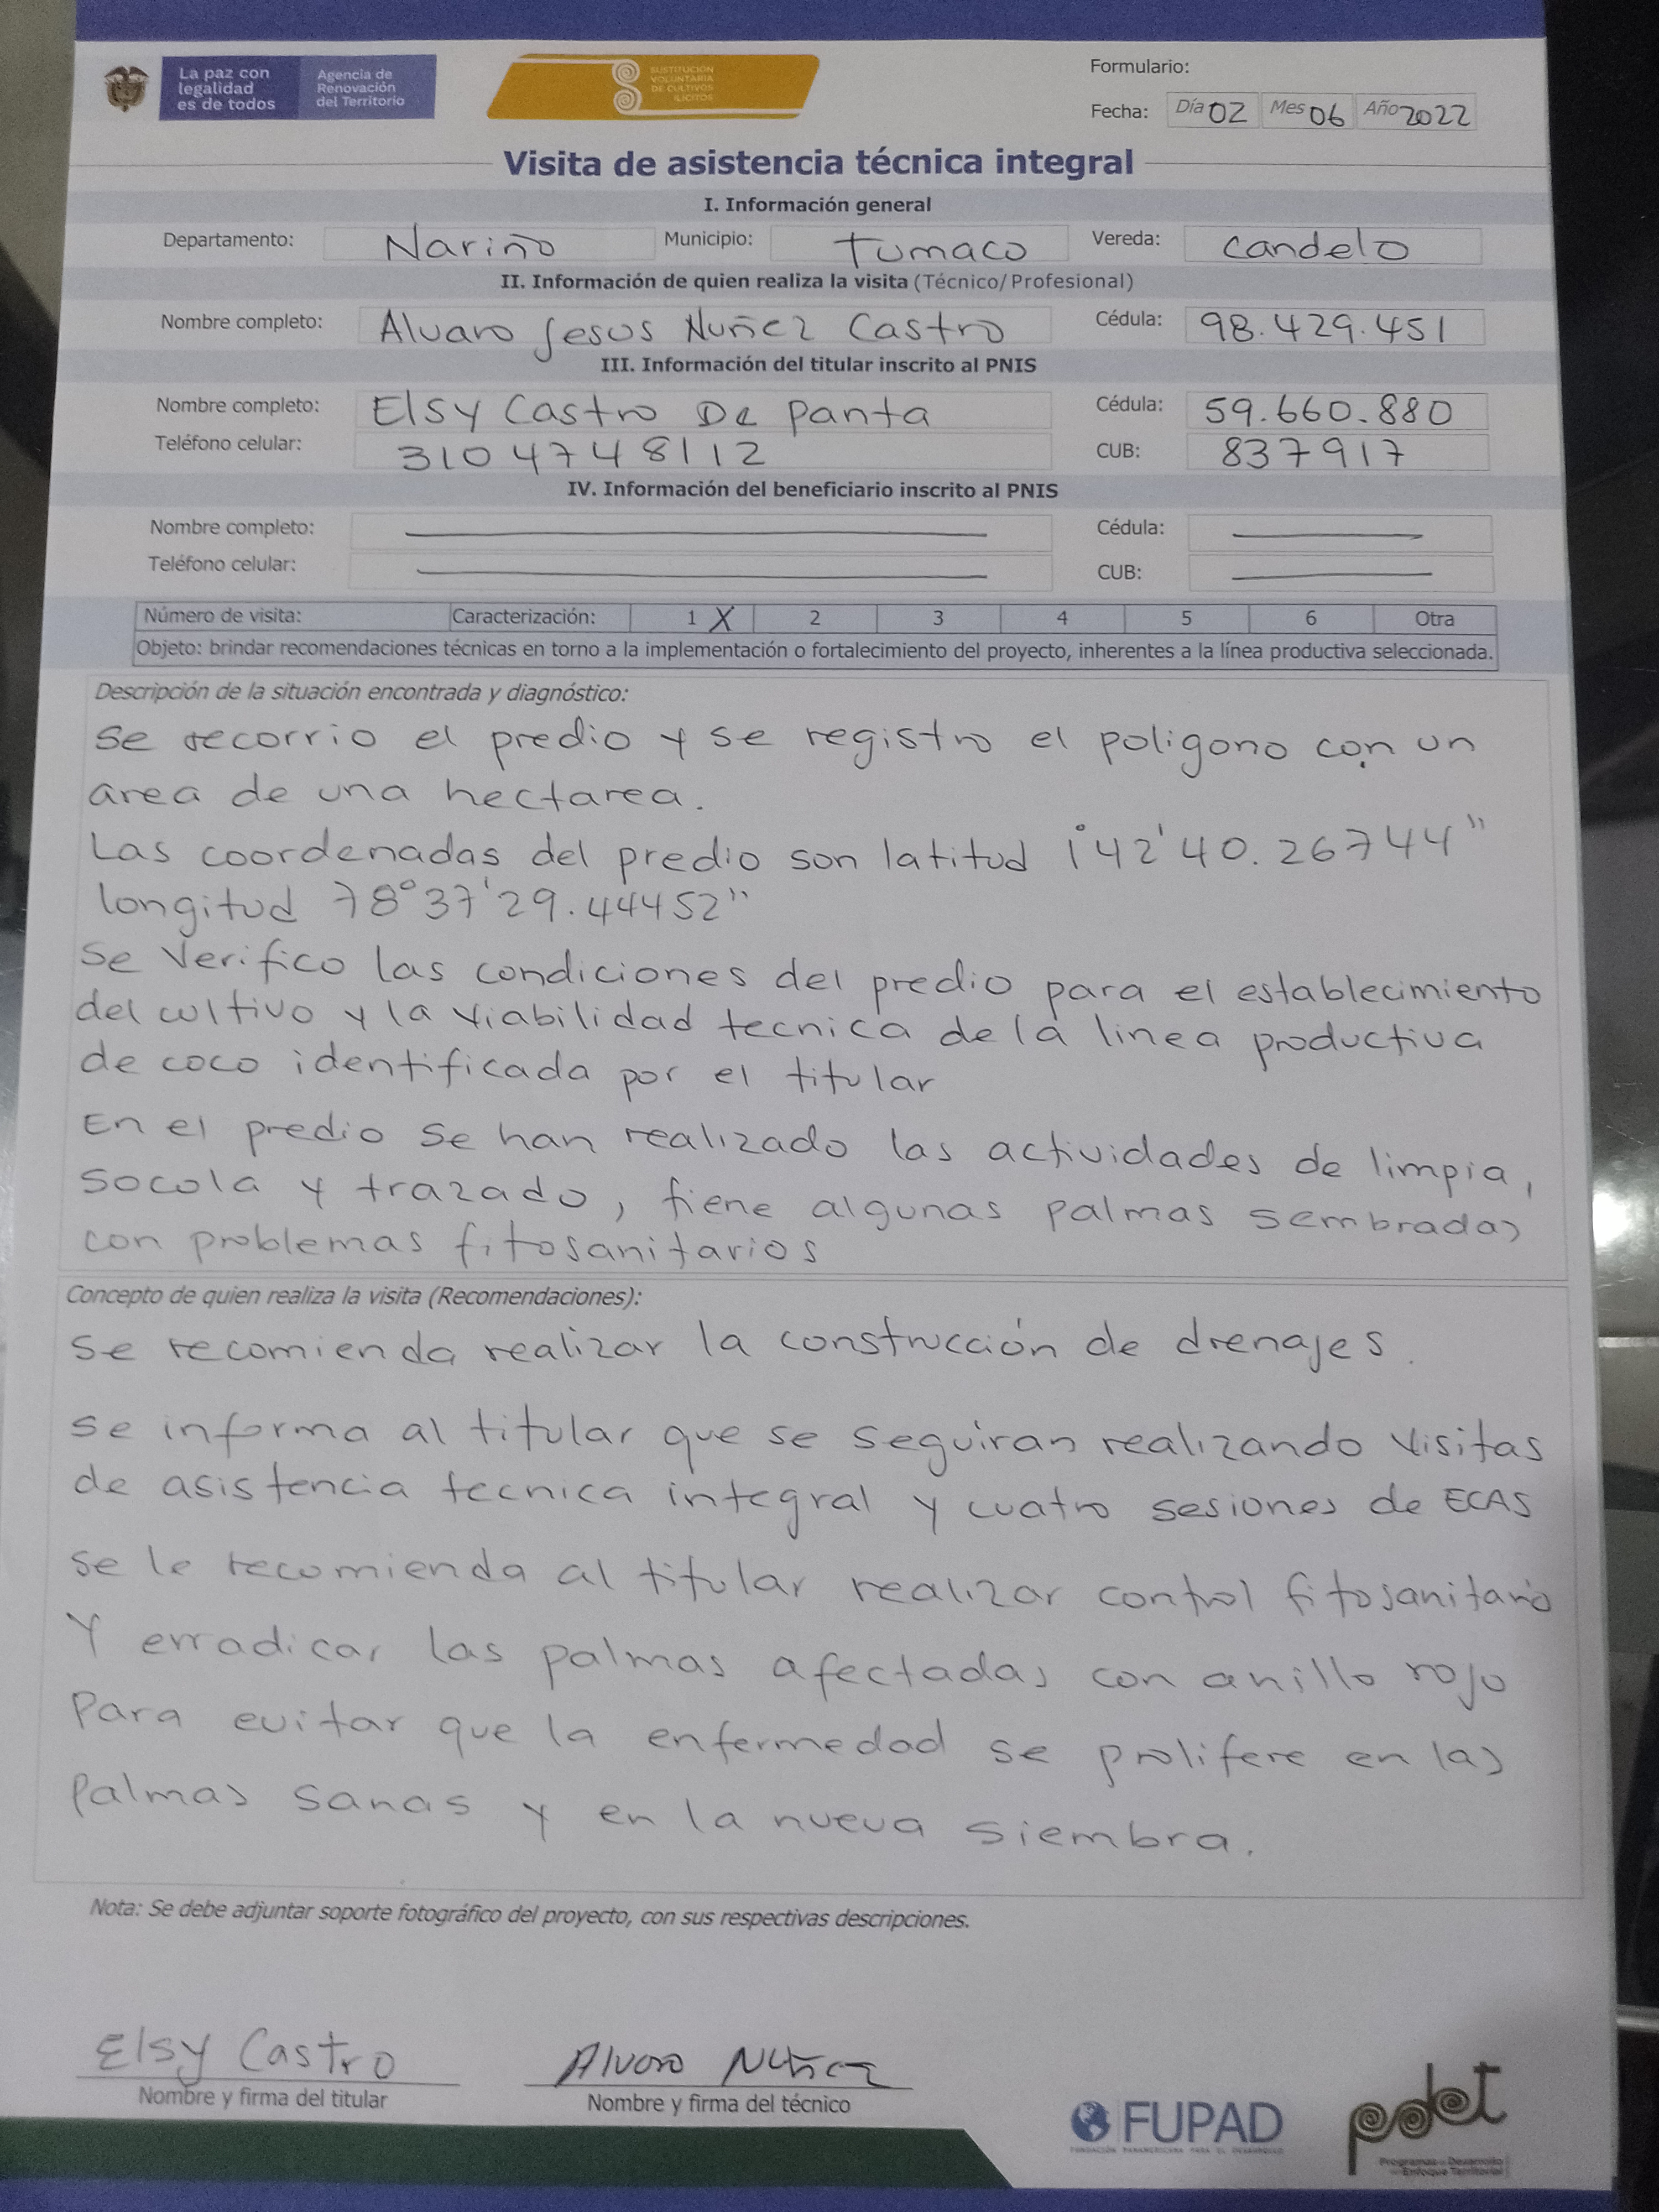 La paz con
legalidad
es de todos
Agencia de
Renovación
del Territorio
SUSTITUCIÓN
VOLUNTARIA
DE CULTIVOS
ILÍCITOS
Formulario:
Fecha: Día 02 Mes 06 Año 2022
Visita de asistencia técnica integral
I. Información general
Departamento: Nariño Municipio: Tumaco Vereda: Candelo
II. Información de quien realiza la visita (Técnico/Profesional)
Nombre completo: Alvaro Jesus Nuñez Castro Cédula: 98.429.451
III. Información del titular inscrito al PNIS
Nombre completo: Elsy Castro De Panta Cédula: 59.660.880
Teléfono celular: 310 4748112 CUB: 837917
IV. Información del beneficiario inscrito al PNIS
Nombre completo: Cédula:
Teléfono celular: CUB:
Número de visita: Caracterización: 1 X 2 3 4 5 6 Otra
Objeto: brindar recomendaciones técnicas en torno a la implementación o fortalecimiento del proyecto, inherentes a la línea productiva seleccionada.
Descripción de la situación encontrada y diagnóstico:
Se recorrio el predio y se registro el poligono con un
area de una hectarea.
Las coordenadas del predio son latitud 1°42'40.26744"
longitud 78°37'29.44452"
Se Verifico las condiciones del predio para el establecimiento
del cultivo y la viabilidad tecnica de la linea productiva
de coco identificada por el titular
En el predio se han realizado las actividades de limpia,
socola y trazado, tiene algunas palmas sembradas
con problemas fitosanitarios
Concepto de quien realiza la visita (Recomendaciones):
Se recomienda realizar la construcción de drenajes.
Se informa al titular que se seguiran realizando visitas
de asistencia tecnica integral y cuatro sesiones de ECAS
se le recomienda al titular realizar control fitosanitario
Y erradicar las palmas afectadas con anillo rojo
Para evitar que la enfermedad se prolifere en las
Palmas sanas y en la nueva siembra.
Nota: Se debe adjuntar soporte fotográfico del proyecto, con sus respectivas descripciones.
Elsy Castro
Nombre y firma del titular
Alvaro Nuñez
Nombre y firma del técnico
FUPAD
FUNDACIÓN PANAMERICANA PARA EL DESARROLLO
pdet
Programas de Desarrollo
con Enfoque Territorial